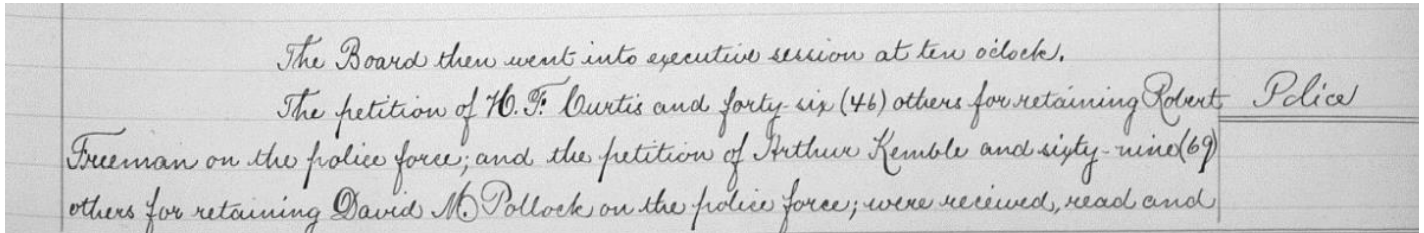 The Board then went into executive session at ten o'clock.
The petition of H. F. Curtis and forty-six (46) others for retaining Robert
Police
Freeman on the police force; and the petition of Arthur Kemble and sixty-nine (69)
others for retaining David M. Pollock on the police force; were received, read and